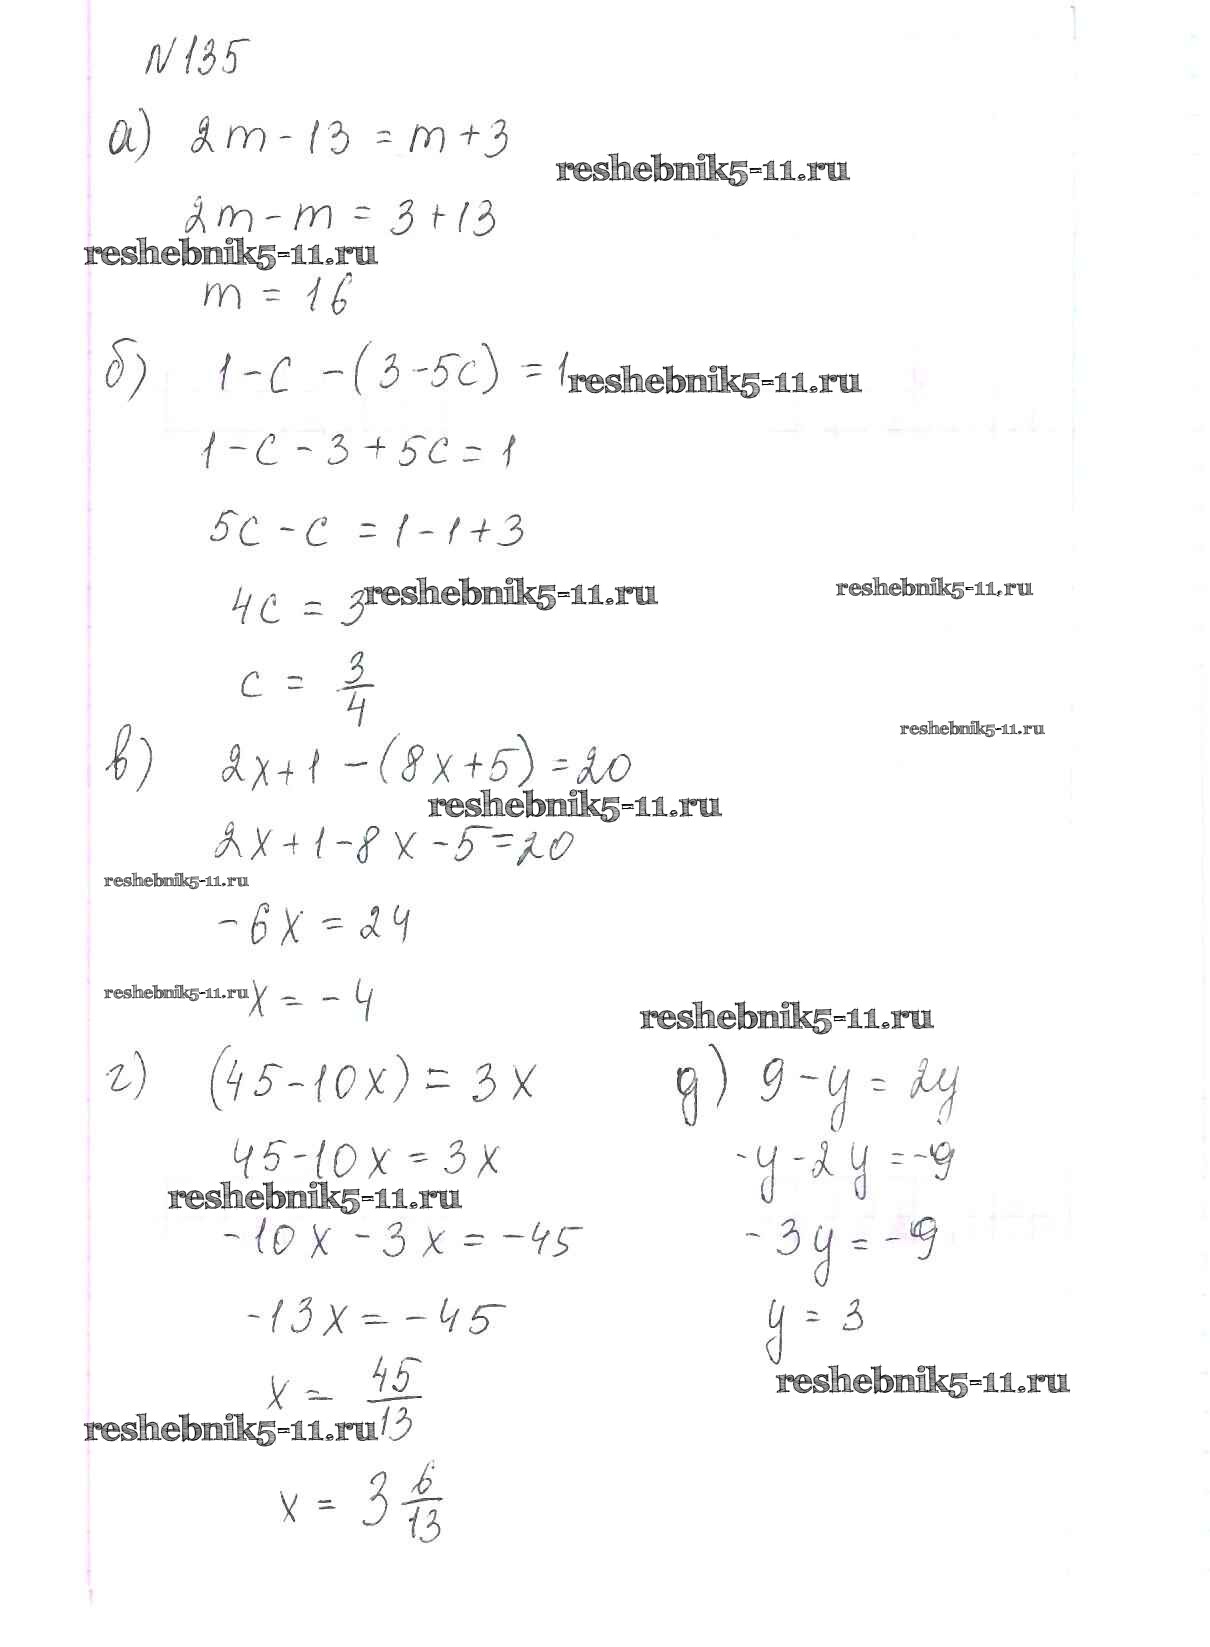 N 135
а) 2m - 13 = m + 3
reshebnik5-11.ru
2m - m = 3 + 13
reshebnik5-11.ru
m = 16
б) 1 - c - (3 - 5c) = 1
reshebnik5-11.ru
1 - c - 3 + 5c = 1
5c - c = 1 - 1 + 3
4c = 3
reshebnik5-11.ru
reshebnik5-11.ru
c = 3/4
reshebnik5-11.ru
в) 2x + 1 - (8x + 5) = 20
reshebnik5-11.ru
2x + 1 - 8x - 5 = 20
reshebnik5-11.ru
-6x = 24
reshebnik5-11.ru
x = -4
reshebnik5-11.ru
г) (45 - 10x) = 3x
45 - 10x = 3x
reshebnik5-11.ru
-10x - 3x = -45
-13x = -45
x = 45/13
reshebnik5-11.ru
x = 3 6/13
д) 9 - y = 2y
-y - 2y = -9
-3y = -9
y = 3
reshebnik5-11.ru